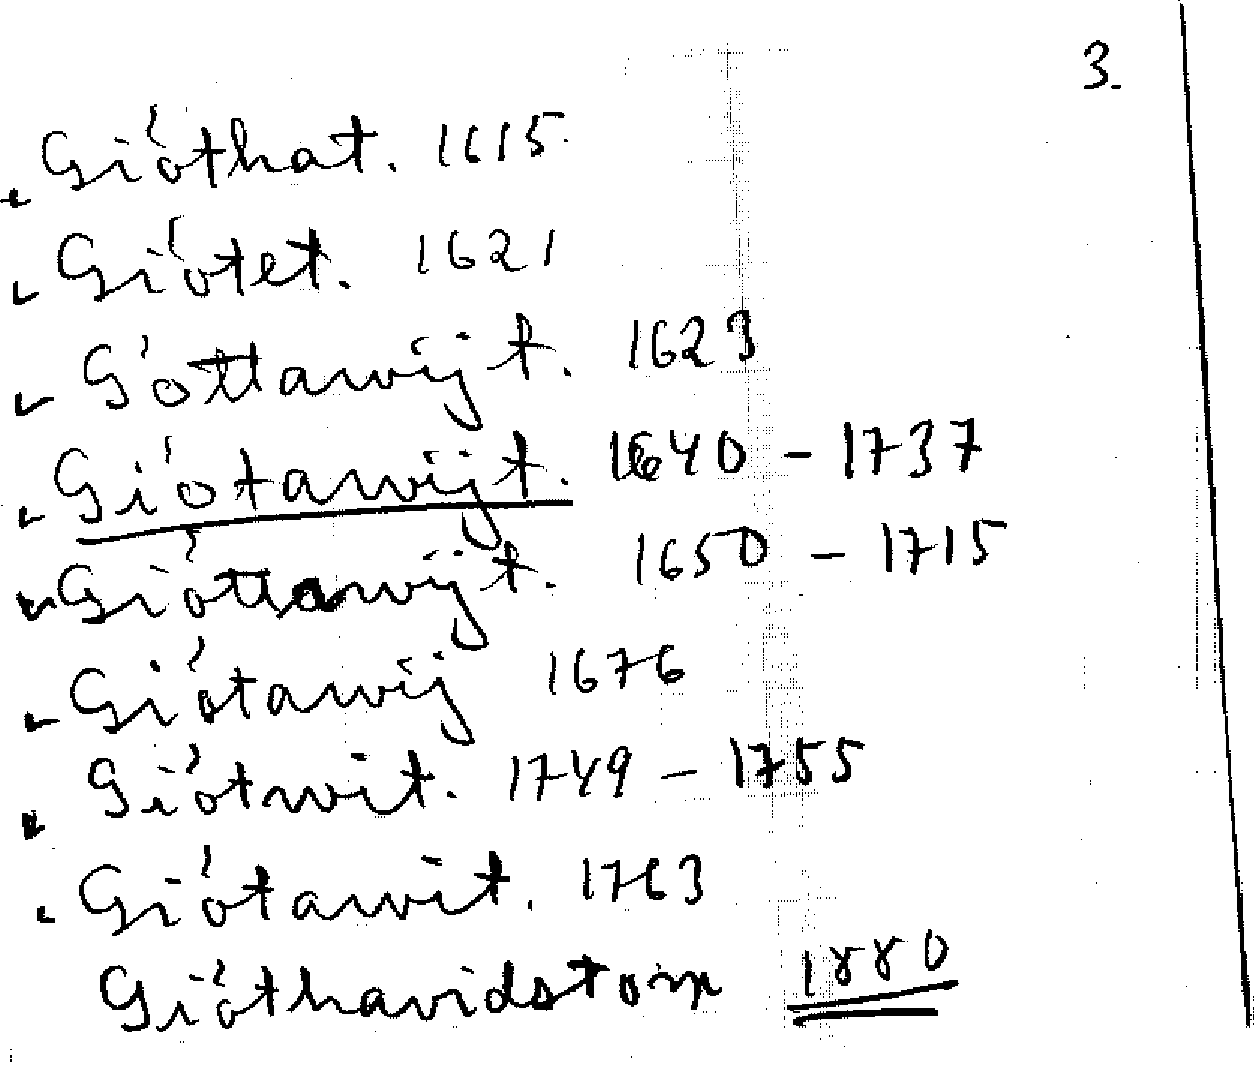 3.
Gióthat. 1615
Giótet. 1621
Góttawijt. 1623
Giótawijt. 1640 – 1737
Gióttawijt. 1650 – 1715
Giótawij 1676
Giótwit. 1749 – 1755
Giótawit. 1763
Gióthavidstorp 1880